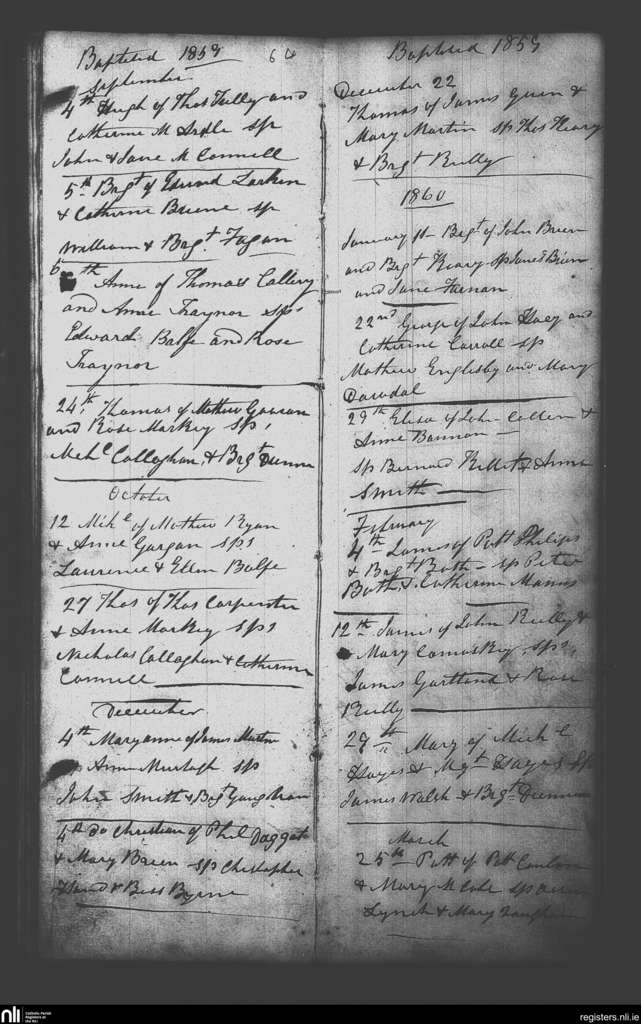 Baptised 1859 64
September
4th Hugh of Thos Tully and
Catherine Mc Ardle sp
John & Jane Mc Connell
5th Bagt of Edward Larken
& Catherine Briene sp
William & Bagt Fagan
6th Anne of Thomas Callery
and Anne Traynor sps
Edward Balfe and Rose
Traynor
24th Thomas of Mathew
and Rose Markey sps
Michl Callaghan & Bagt Dunne
October
12 Michl of Mathew Ryan
& Anne Gargan sps
Laurence & Ellen Balfe
27 Thos of Thos Carpenter
& Anne Markey sps
Nicholas Callaghan & Catherine
Connell
December
4th Maryanne of James Martin
Anne Murtagh sp
John Smith & Bagt
4th Do Christian of Phil Daggat
& Mary Brien sp Christopher
& Bess Byrne
Baptised 1859
December 22
Thomas of James Green &
Mary Martin sp Thos Heary
& Bragt Reilly
1860
January 11th Bagt of John Brien
and Bagt Heary sp James Brien
and Jane
22nd George of John Hoey and
Catherine Carroll sp
Mathew Englesby and Mary
Dowdal
29th Eliza of John Cullen &
Anne Bannon
sp Bernard & Anne
Smith
February
4th James of Patt Philips
& Bagt Bath sp Peter
Bath & Catherine Manus
12th James of John Reilly &
Mary Comaskey sps
James Gartland & Rose
Reilly
29th Mary of Michl
Hayes & Mgt Hayes sp
James Walsh & Bagt Dunne
March
25th Patt of Patt
& Mary Mc Cabe sp
Lynch & Mary
nli
Catholic Parish
Registers at
the NLI
registers.nli.ie